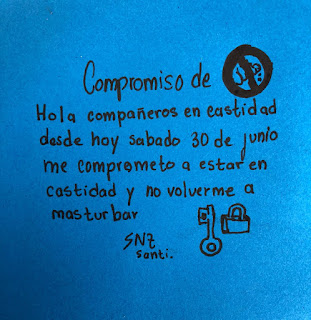 Compromiso de
Hola compañeros en castidad
desde hoy sabado 30 de junio
me comprometo a estar en
castidad y no volverme a
masturbar
SNZ
santi.